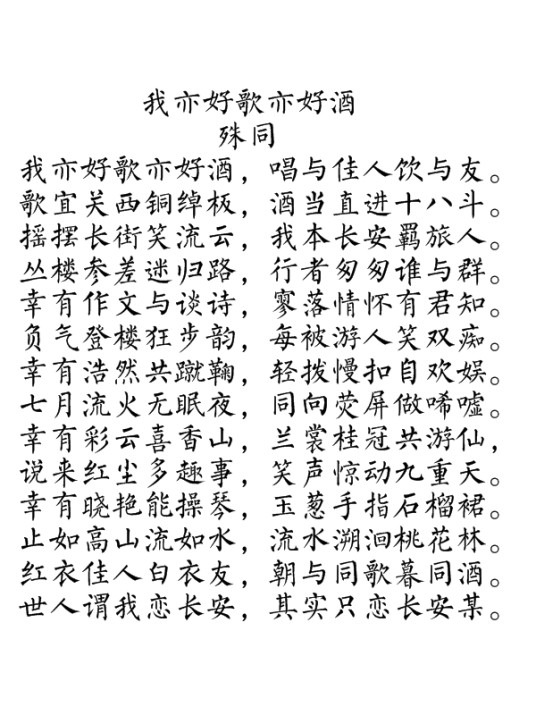 我亦好歌亦好酒
殊同
我亦好歌亦好酒，唱与佳人饮与友。
歌宜关西铜绰板，酒当直进十八斗。
摇摆长街笑流云，我本长安羁旅人。
丛楼参差迷归路，行者匆匆谁与群。
幸有作文与谈诗，寥落情怀有君知。
负气登楼狂步韵，每被游人笑双痴。
幸有浩然共蹴鞠，轻拨慢扣自欢娱。
七月流火无眠夜，同向荧屏做唏嘘。
幸有彩云喜香山，兰裳桂冠共游仙，
说来红尘多趣事，笑声惊动九重天。
幸有晓艳能操琴，玉葱手指石榴裙。
止如高山流如水，流水溯洄桃花林。
红衣佳人白衣友，朝与同歌暮同酒。
世人谓我恋长安，其实只恋长安某。